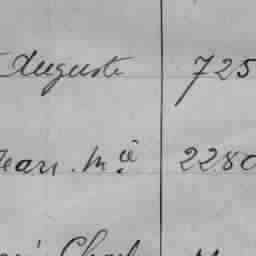 Auguste 725
Jean. Mie 2280